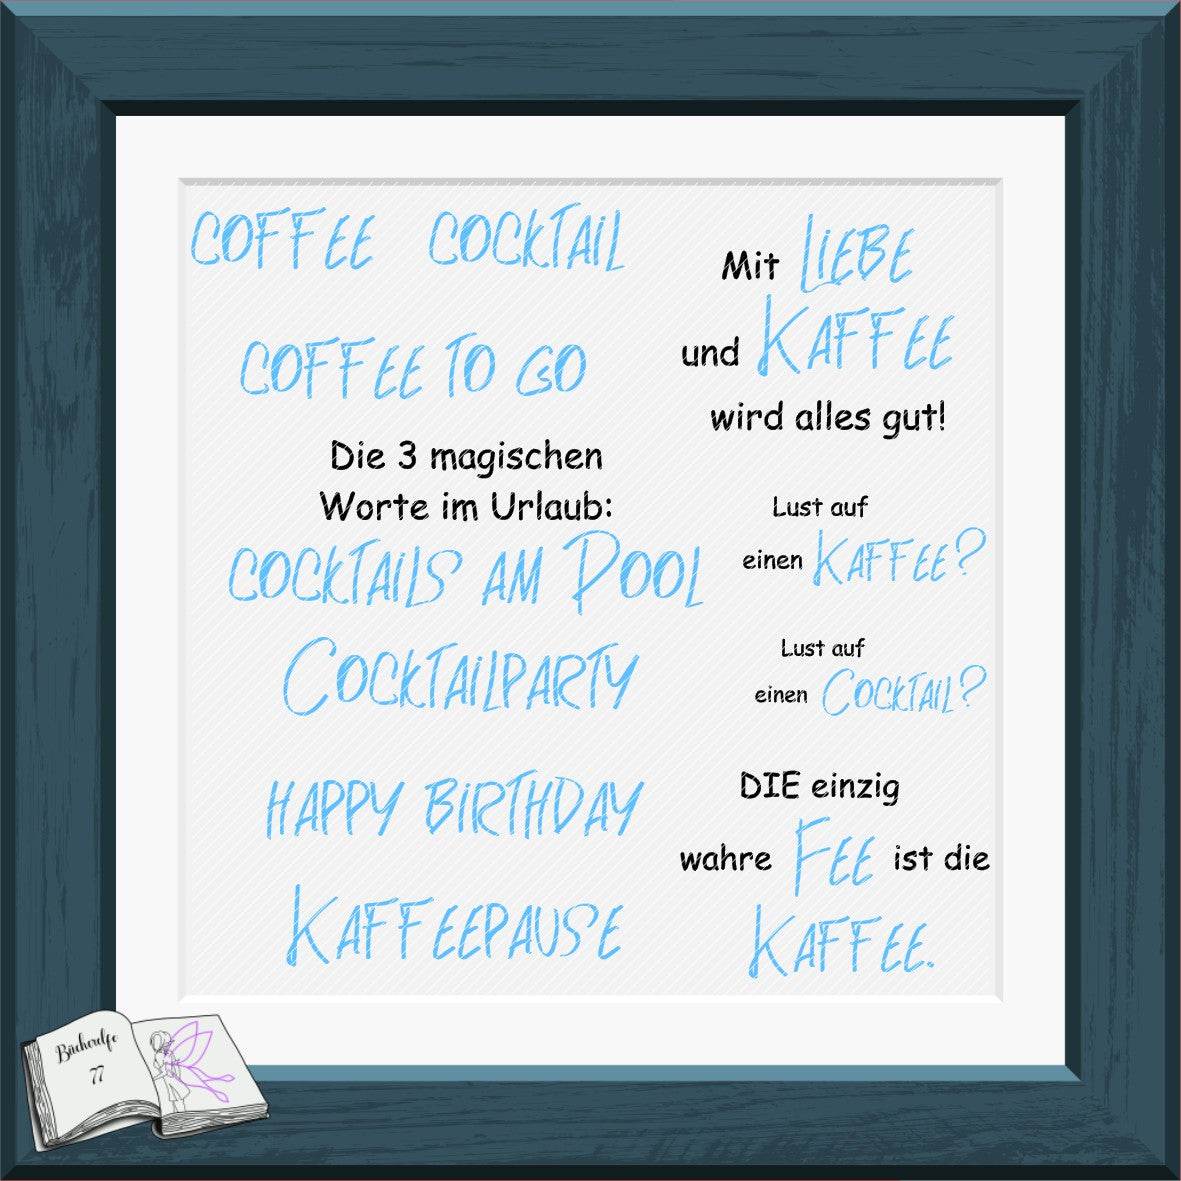 COFFEE COCKTAIL
COFFEE TO GO
Die 3 magischen
Worte im Urlaub:
COCKTAILS AM POOL
COCKTAILPARTY
HAPPY BIRTHDAY
KAFFEEPAUSE
Mit LIEBE
und KAFFEE
wird alles gut!
Lust auf
einen KAFFEE?
Lust auf
einen COCKTAIL?
DIE einzig
wahre FEE ist die
KAFFEE.
Bücherelfe
77